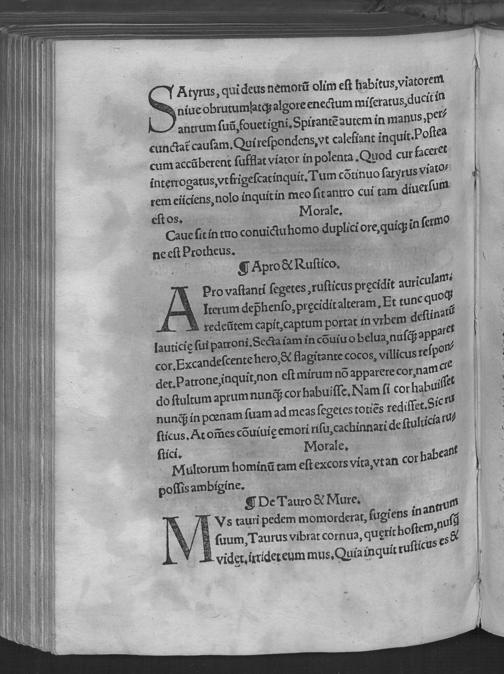 SAtyrus, qui deus nemorū olim est habitus, viatorem
niue obrutum, atqꝫ algore enectum miseratus, ducit in
antrum suū, fouet igni. Spirantē autem in manus, per⸗
cunctat͛ causam. Qui respondens, vt calefiant inquit. Postea
cum accūberent sufflat viator in polenta. Quod cur faceret
interrogatus, vt frigescat inquit. Tum cōtinuo satyrus viato⸗
rem eijciens, nolo inquit in meo sit antro cui tam diuersum
est os.
Morale.
Caue sit in tuo conuictu homo duplici ore, quiqꝫ in sermo
ne est Protheus.
¶ Apro & Rustico.
APro vastanti segetes, rusticus pręcidit auriculam,
Iterum dep̄henso, pręcidit alteram. Et tunc quoqꝫ
redeūtem capit, captum portat in vrbem destinatū
lauticię sui patroni. Secta iam in cōuiuio belua, nusqꝫ apparet
cor. Excandescente hero, & flagitante cocos, villicus respon⸗
det. Patrone, inquit, non est mirum nō apparere cor, nam cre
do stultum aprum nunqꝫ cor habuisse. Nam si cor habuisset
nunqꝫ in pœnam suam ad meas segetes totiēs redisset. Sic ru
sticus. At om̄es cōuiuię emori risu, cachinnari de stulticia ru⸗
stici.
Morale.
Multorum hominū tam est excors vita, vt an cor habeant
possis ambigine.
¶ De Tauro & Mure.
MVs tauri pedem momorderat, fugiens in antrum
suum, Taurus vibrat cornua, quęrit hostem, nusqꝫ
videt, irridet eum mus. Quia inquit rusticus es &